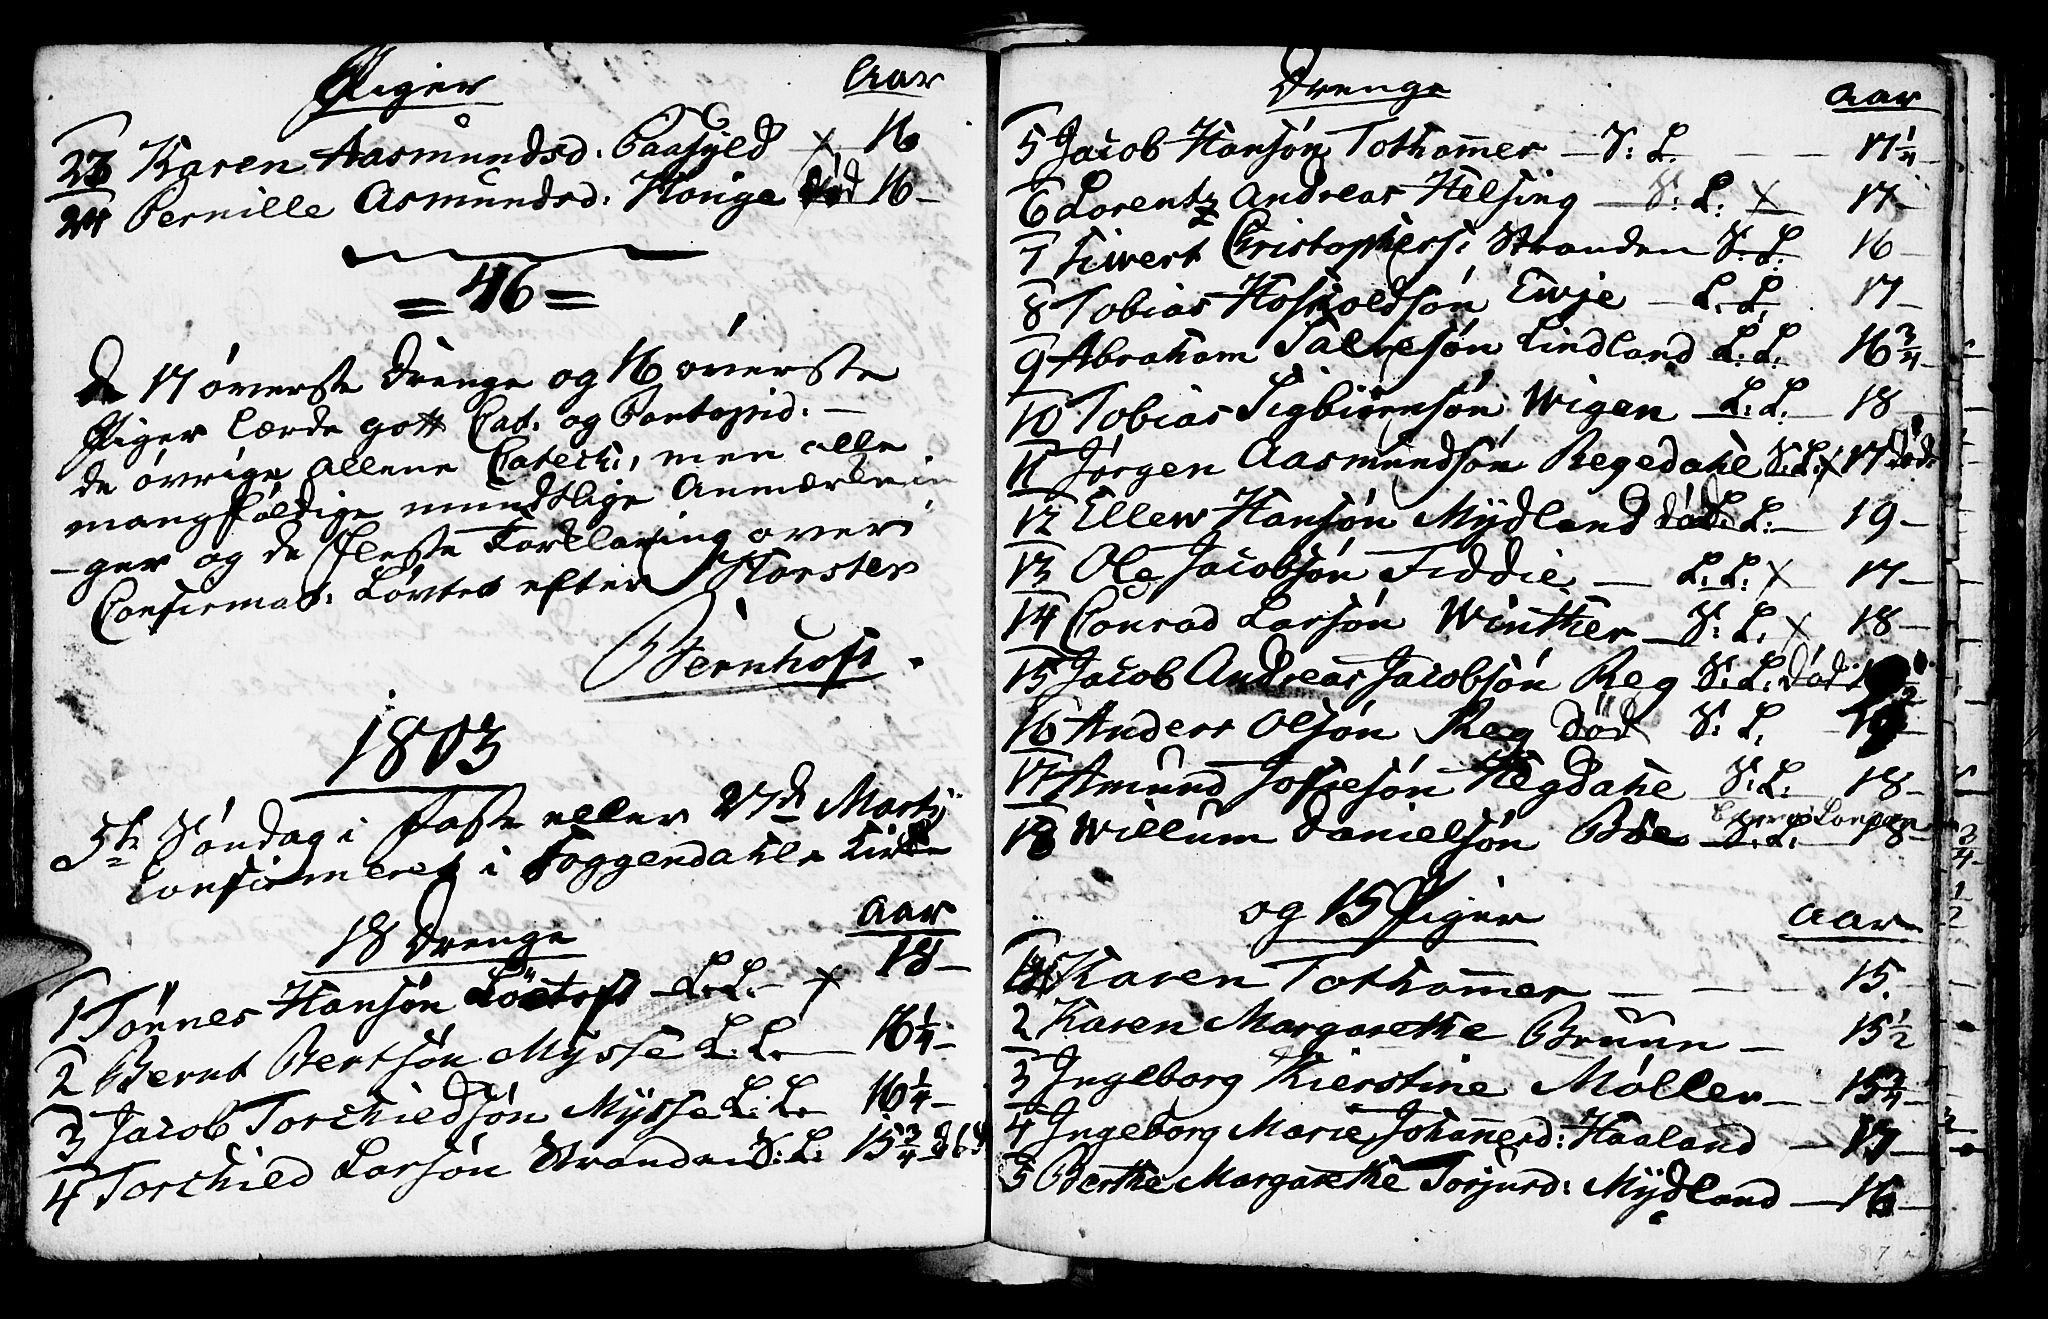 Piger Aar
23 Karen Aasmundsd: Baasyld x 16
24 Pernille Asmundsd: Houge død 16 –
= 46 =
De 17 øverste Drenge og 16 øverste
Piger lærde gott Cat: og Pontoppid: –
de øvrige allene Catech:, men alle
mangfoldige mundtlige Anmærknin
-ger og de fleste Forklaring over
Confirmat: Løvtet efter Horster
Bernhoft.
1803
5te Søndag i Faste eller 27de Martij
Confirmeret i Soggendahls Kirke
18 Drenge Aar
1 Tønnes Hansøn – L: L: – x 18 –
2 Bernt Bertsøn Mysse L: L: – 16 1/4 –
3 Jacob Torchieldsøn Mysse L: L: 16 1/4 –
4 Torchild Larsøn Stranden S: L: 15 3/4 død
Drenge Aar
5 Jacob Hansøn Tothammer – S: L. – – 17 1/4
6 Lorentz Andreas Helsing – S: L: x 17 –
7 Sivert Christophers: Stranden S: L: 16 –
8 Tobias Hoskoldsøn Ewje – L. L. 17 –
9 Abraham Salvesøn Lindland L: L: 16 3/4
10 Tobias Sigbiørnsøn Wigen – L: L. – 18
11 Jørgen Aasmundsøn Regedahl S: L: x 17 død
12 Ellew Hansøn Mydland død L: – 19 –
13 Ole Jacobsøn Fiddie – L. L: x 17 –
14 Conrad Larsøn Winther – S: L. x 18 –
15 Jacob Andreas Jacobsøn Reg S: L: Død
16 Anders Olsøn Reg død S: L.
17 Amund Josiesøn Hegdahl S: L. 18 –
18 Willum Danielsøn Bøe – S: L. – 18 –
og 15 Piger Aar
1 Karen Tothammer – – – 15.
2 Karen Margarethe Bruun – 15 1/2
3 Ingeborg Kierstine Møller – 15 3/4 –
4 Ingeborg Marie Johannesd: Haaland – 17 –
5 Berthe Margarethe Torjusd: Mydland – 16 –